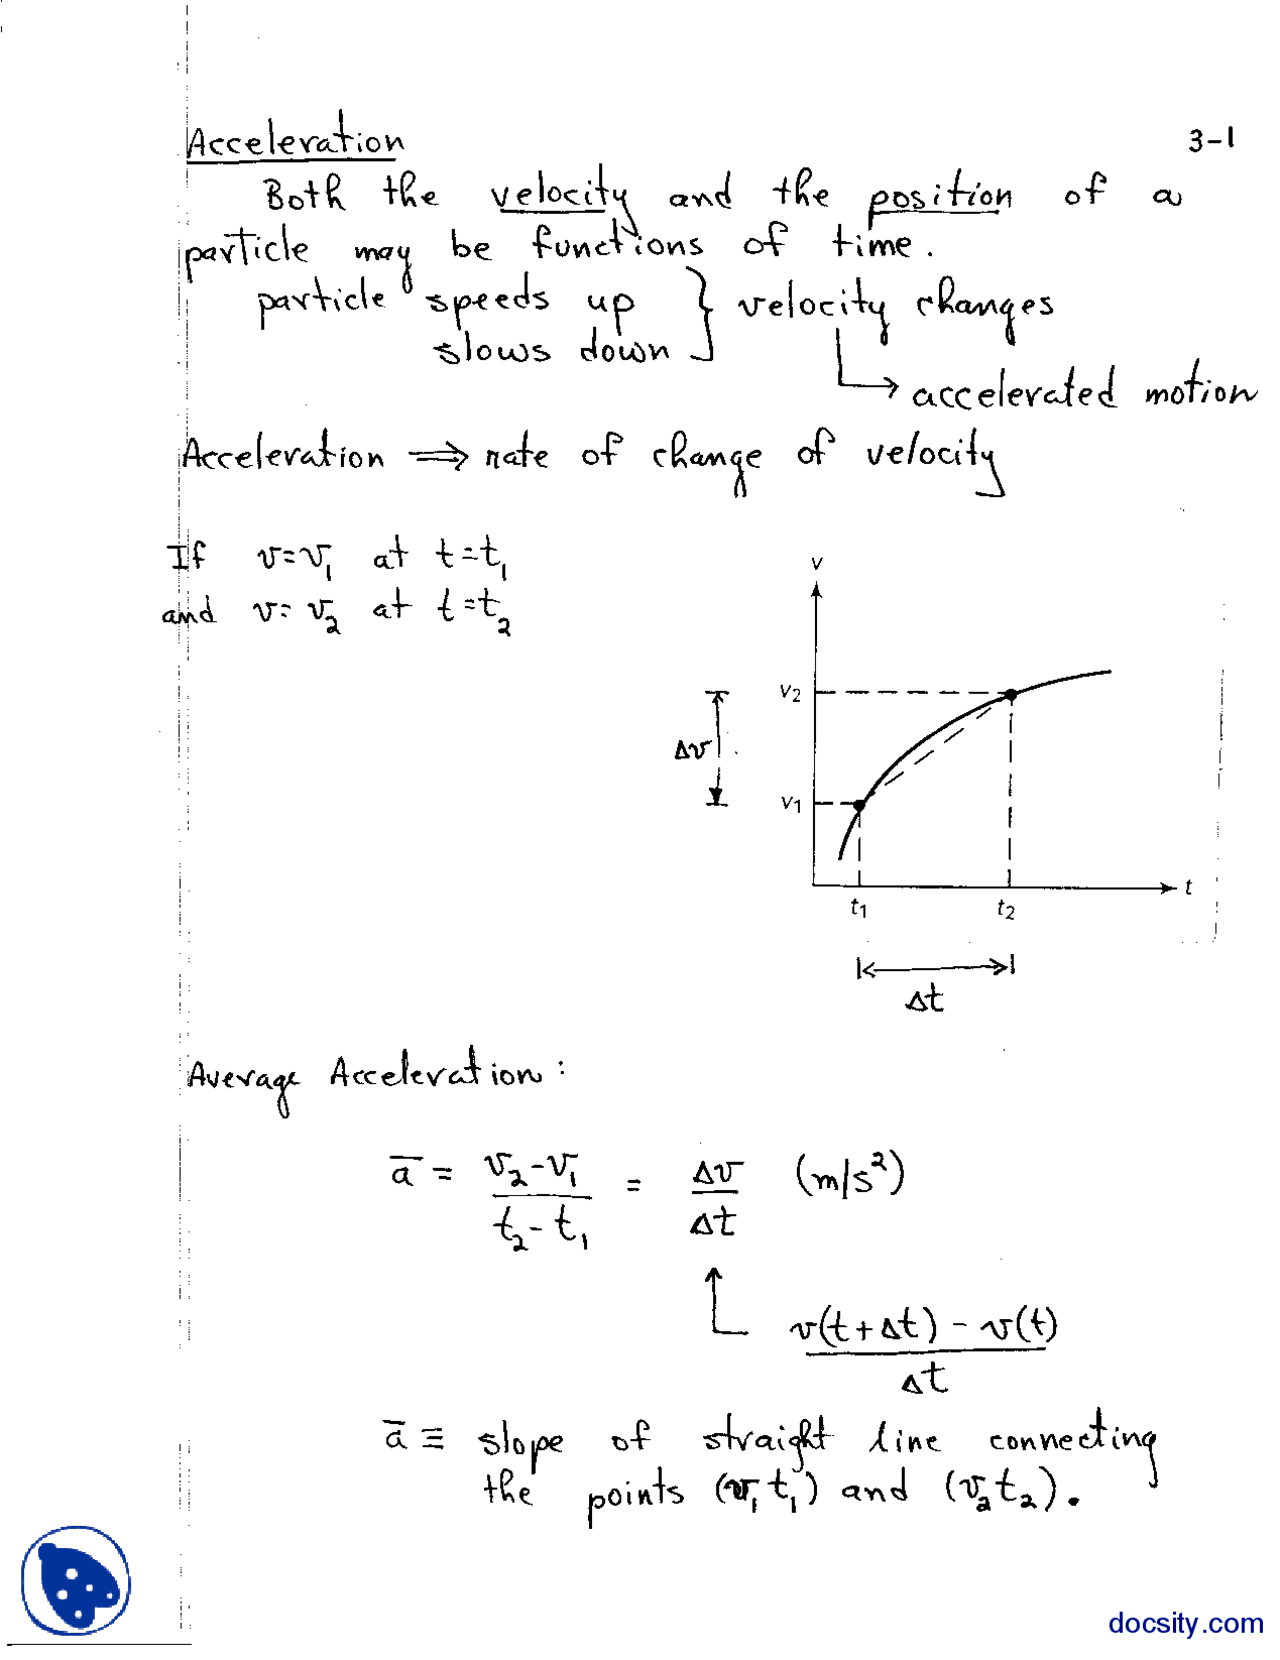 Acceleration
3-1
Both the velocity and the position of a
particle may be functions of time.
particle speeds up } velocity changes
slows down
→ accelerated motion
Acceleration ⇒ rate of change of velocity
If v=v₁ at t=t₁
and v=v₂ at t=t₂
v
v₂
Δv
v₁
t
t₁ t₂
Δt
Average Acceleration:
a̅ = (v₂-v₁)/(t₂-t₁) = Δv/Δt (m/s²)
(v(t+Δt) - v(t))/Δt
a̅ ≡ slope of straight line connecting
the points (v₁ t₁) and (v₂ t₂).
docsity.com